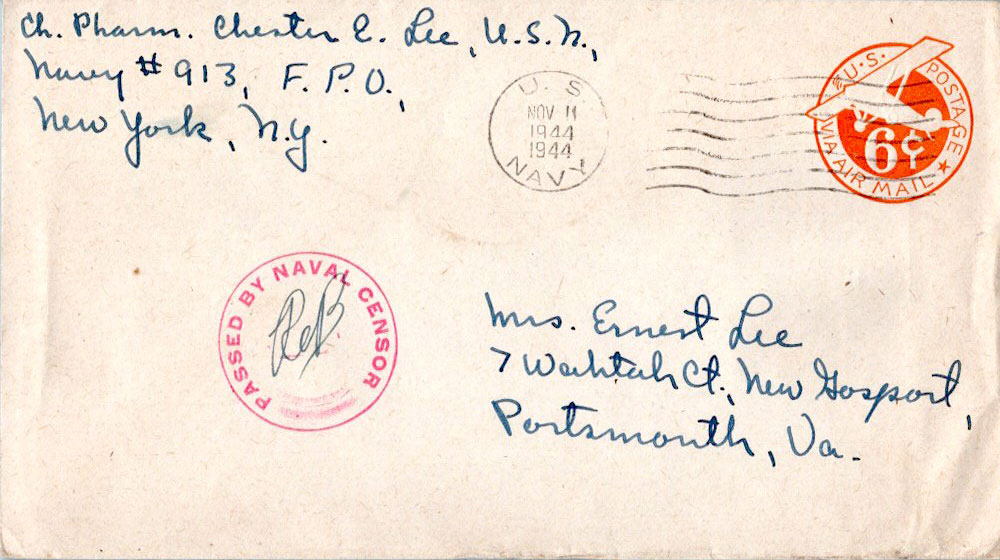 Ch. Pharm. Chester E. Lee, U.S.N.,
Navy # 913, F.P.O.,
New York, N.Y.
U. S.
NOV 11
1944
1944
NAVY
U.S. POSTAGE
6¢
VIA AIR MAIL
PASSED BY NAVAL CENSOR
Mrs. Ernest Lee
7 Wahtah Ct., New Gosport,
Portsmouth, Va.